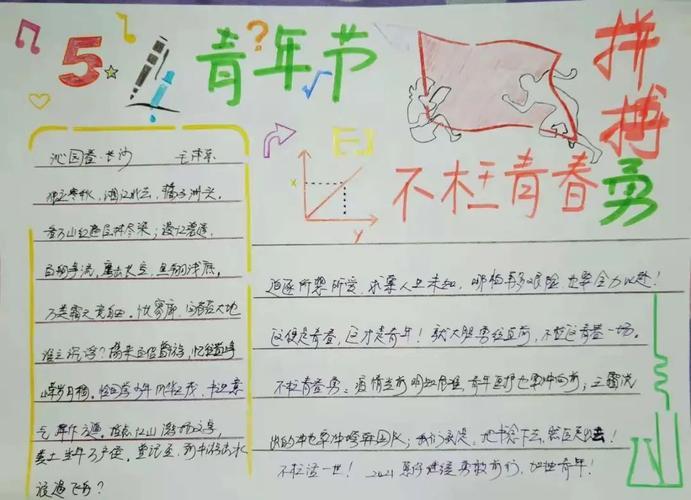 5
青年节
拼搏
不枉青春勇
沁园春·长沙 毛泽东
独立寒秋,湘江北去,橘子洲头。
看万山红遍层林尽染;漫江碧透,
百舸争流,鹰击长空,鱼翔浅底,
万类霜天竞自由。怅寥廓,问苍茫大地
谁主沉浮?携来百侣曾游,忆往昔峥
嵘岁月稠。恰同学少年,风华正茂,书生意
气,挥斥方遒。指点江山,激扬文字,
粪土当年万户侯。曾记否,到中流击水
浪遏飞舟?
x
y
追逐所想所爱,求索人之未知,哪怕再多艰险,也要全力以赴!
这便是青春,这才是青年!就大胆勇往直前,不枉这青春一场。
不枉青春勇。疫情当前明知危难,青年医护也要冲向前;
出的冲也要冲
不枉这一世!2021愿你继续勇敢前行,加油青年!